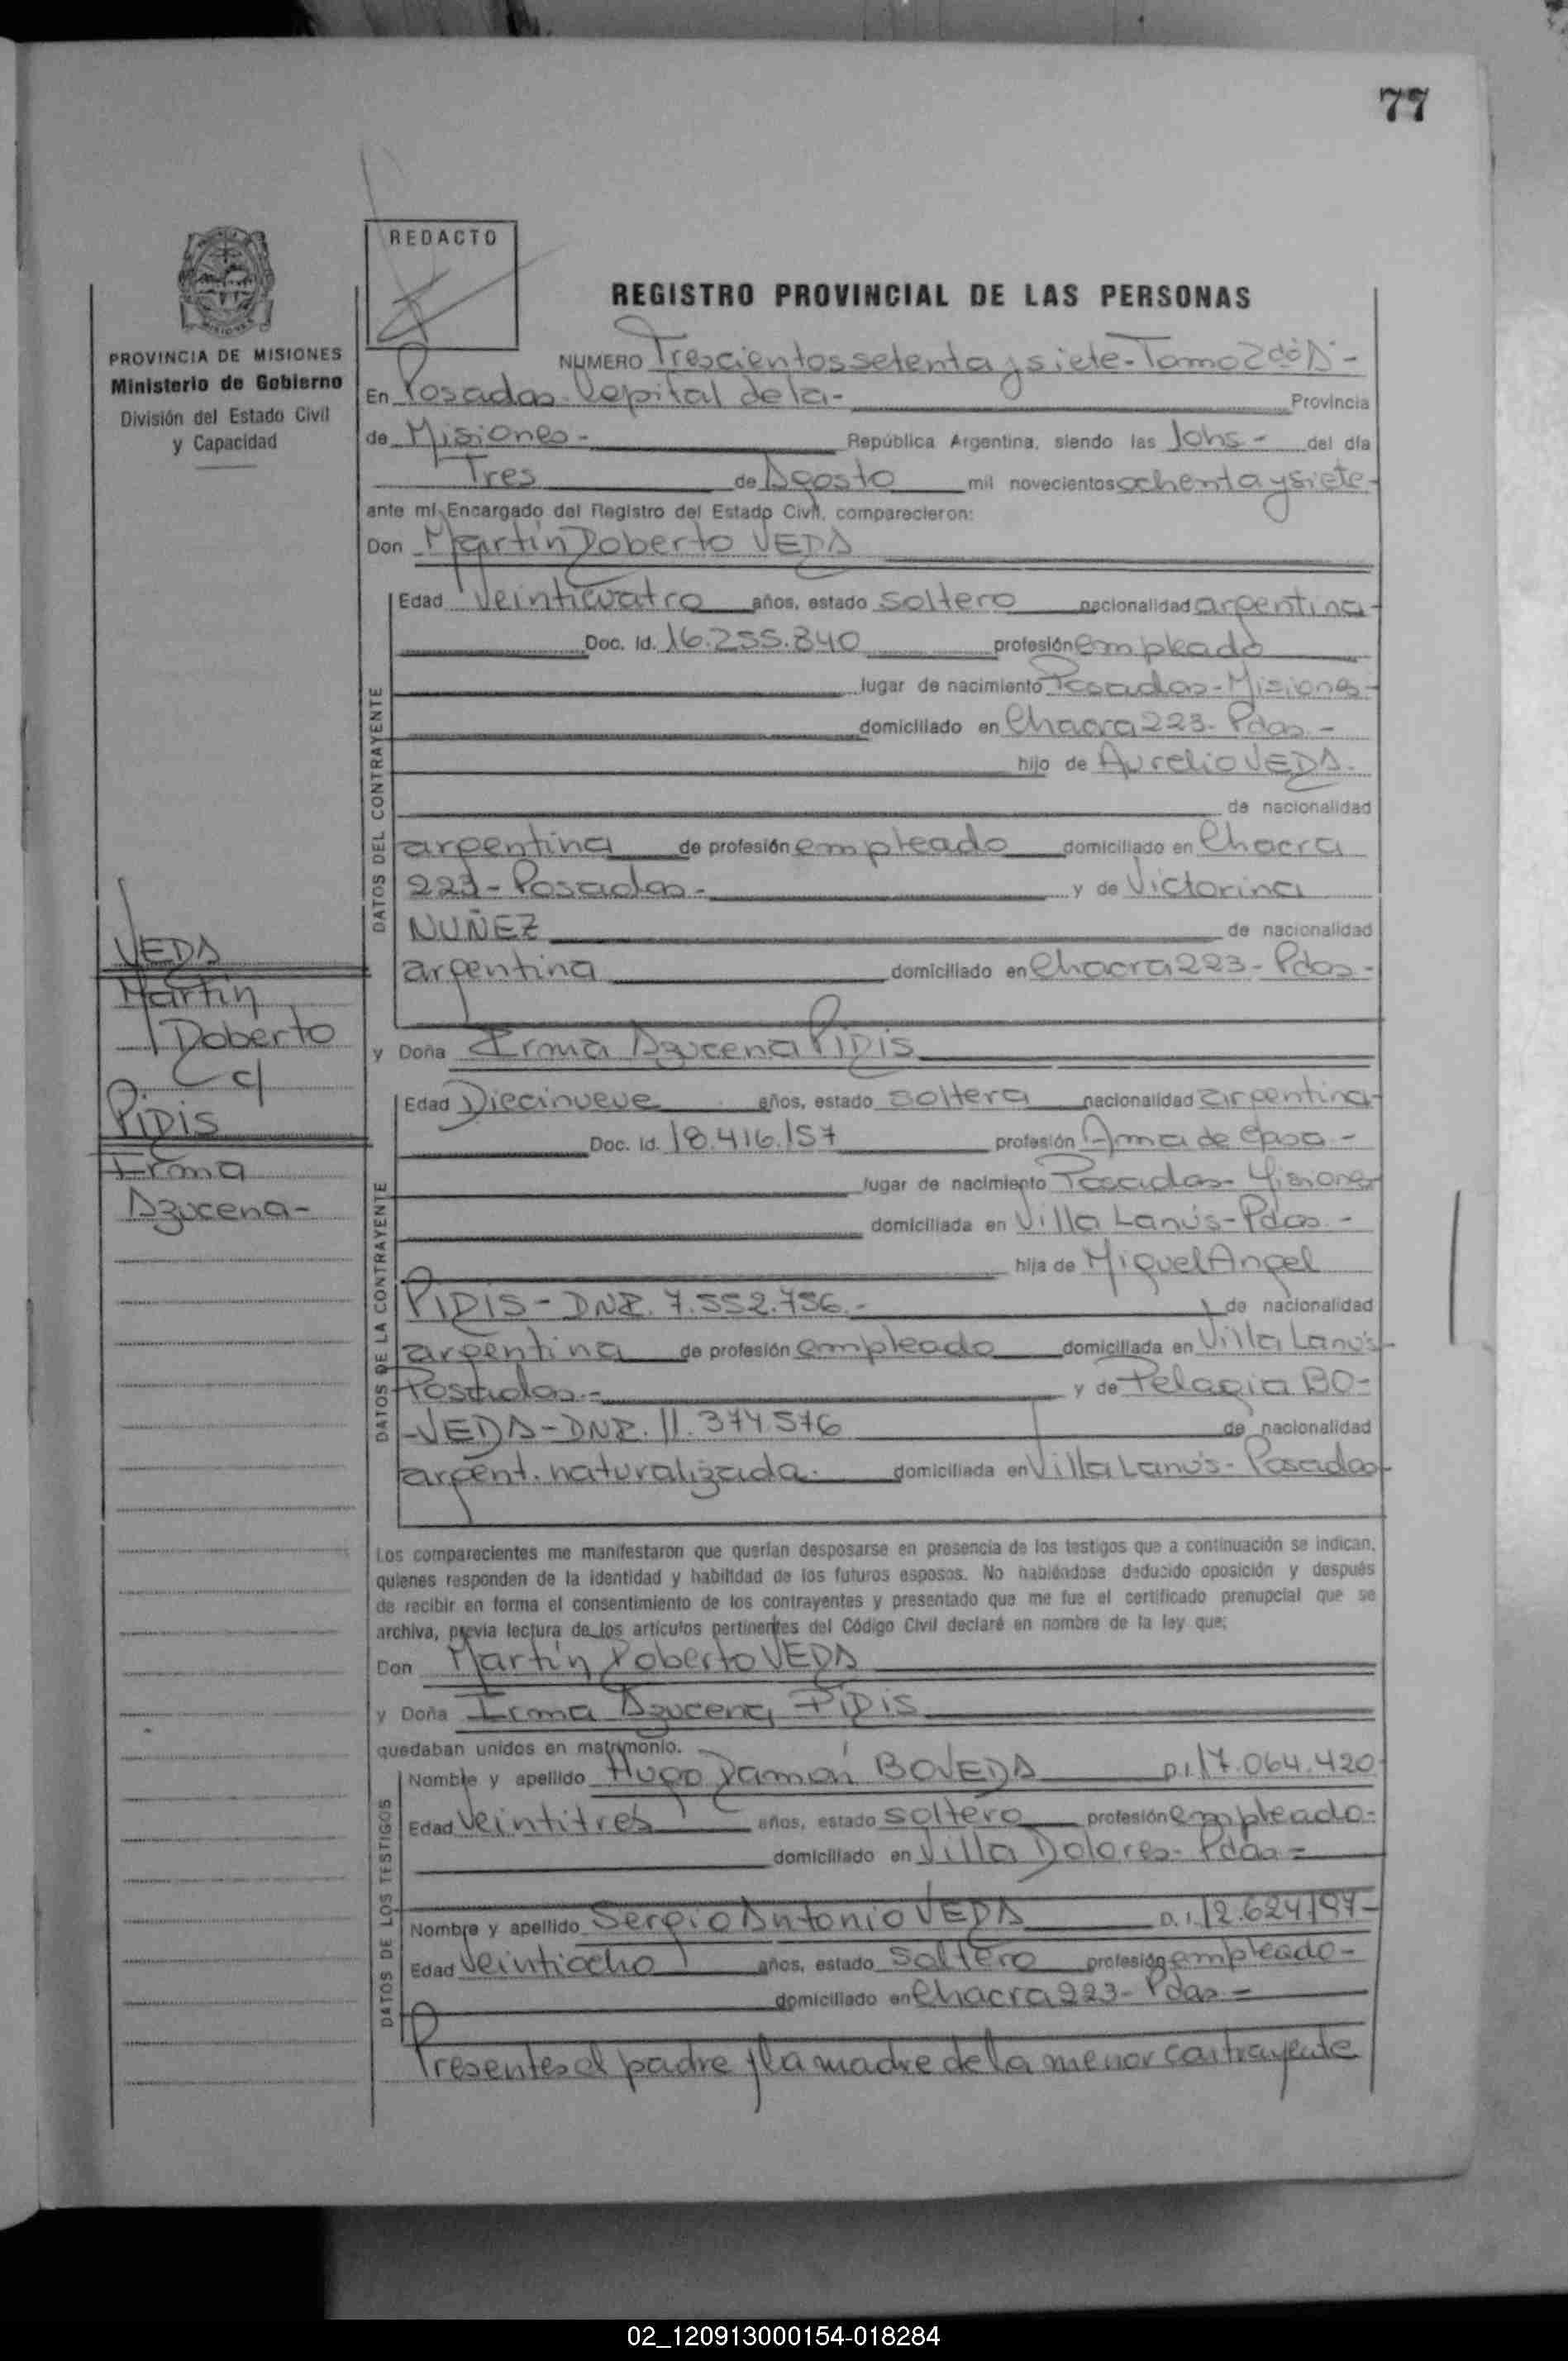 77
REDACTO
REGISTRO PROVINCIAL DE LAS PERSONAS
PROVINCIA DE MISIONES
Ministerio de Gobierno
División del Estado Civil
y Capacidad
NUMERO Trescientos setenta y siete - Tomo 2do A -
En Posadas - Capital de la - Provincia
de Misiones - República Argentina, siendo las 10hs - del día
Tres de Agosto mil novecientos ochenta y siete -
ante mí, Encargado del Registro del Estado Civil, comparecieron:
Don Martin Roberto VEDA
Edad Veinticuatro años, estado soltero nacionalidad argentina -
Doc. Id. 16.255.840 profesión empleado
lugar de nacimiento Posadas - Misiones -
domiciliado en Chacra 223 - Pdas -
hijo de Aurelio VEDA.
de nacionalidad
argentina de profesión empleado domiciliado en Chacra
223 - Posadas - y de Victorina
NUÑEZ de nacionalidad
argentina domiciliado en Chacra 223 - Pdas -
DATOS DEL CONTRAYENTE
VEDA
Martin
Roberto
c/
PIRIS
Irma
Azucena -
y Doña Irma Azucena PIRIS
Edad Diecinueve años, estado soltera nacionalidad argentina -
Doc. Id. 18.416.157 profesión Ama de Casa -
lugar de nacimiento Posadas - Misiones
domiciliada en Villa Lanús - Pdas. -
hija de Miguel Angel
PIRIS - DNI. 7.552.756. - de nacionalidad
argentina de profesión empleado domiciliada en Villa Lanús -
Posadas. - y de Pelagia BO -
- VEDA - DNI. 11.374.576 de nacionalidad
argent. naturalizada. domiciliada en Villa Lanús - Posadas
DATOS DE LA CONTRAYENTE
Los comparecientes me manifestaron que querían desposarse en presencia de los testigos que a continuación se indican,
quienes responden de la identidad y habilidad de los futuros esposos. No habiéndose deducido oposición y después
de recibir en forma el consentimiento de los contrayentes y presentado que me fue el certificado prenupcial que se
archiva, previa lectura de los artículos pertinentes del Código Civil declaré en nombre de la ley que:
Don Martín Roberto VEDA
y Doña Irma Azucena PIRIS
quedaban unidos en matrimonio.
Nombre y apellido Hugo Ramón BOVEDA D.I. 17.064.420
Edad Veintitres años, estado soltero profesión empleado -
domiciliado en Villa Dolores - Pdas -
Nombre y apellido Sergio Antonio VEDA D.I. 12.624.197 -
Edad Veintiocho años, estado soltero profesión empleado -
domiciliado en Chacra 223 - Pdas -
DATOS DE LOS TESTIGOS
Presentes el padre y la madre de la menor contrayente
02_120913000154-018284